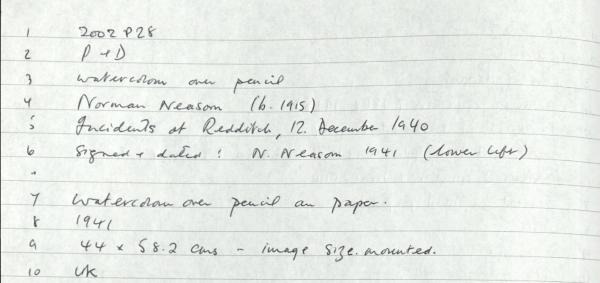 1 2002 P28
2 P + D
3 watercolour over pencil
4 Norman Neasom (b. 1915)
5 Incidents at Redditch, 12. December 1940
6 Signed + dated : N. Neasom 1941 (lower left)
"
7 watercolour over pencil on paper.
8 1941
9 44 x 58.2 cms - image size. mounted.
10 UK